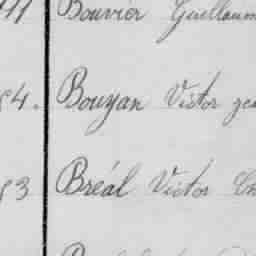 Bouvier Guillaum
84. Bouyan Victor
83 Bréal Victor Ch